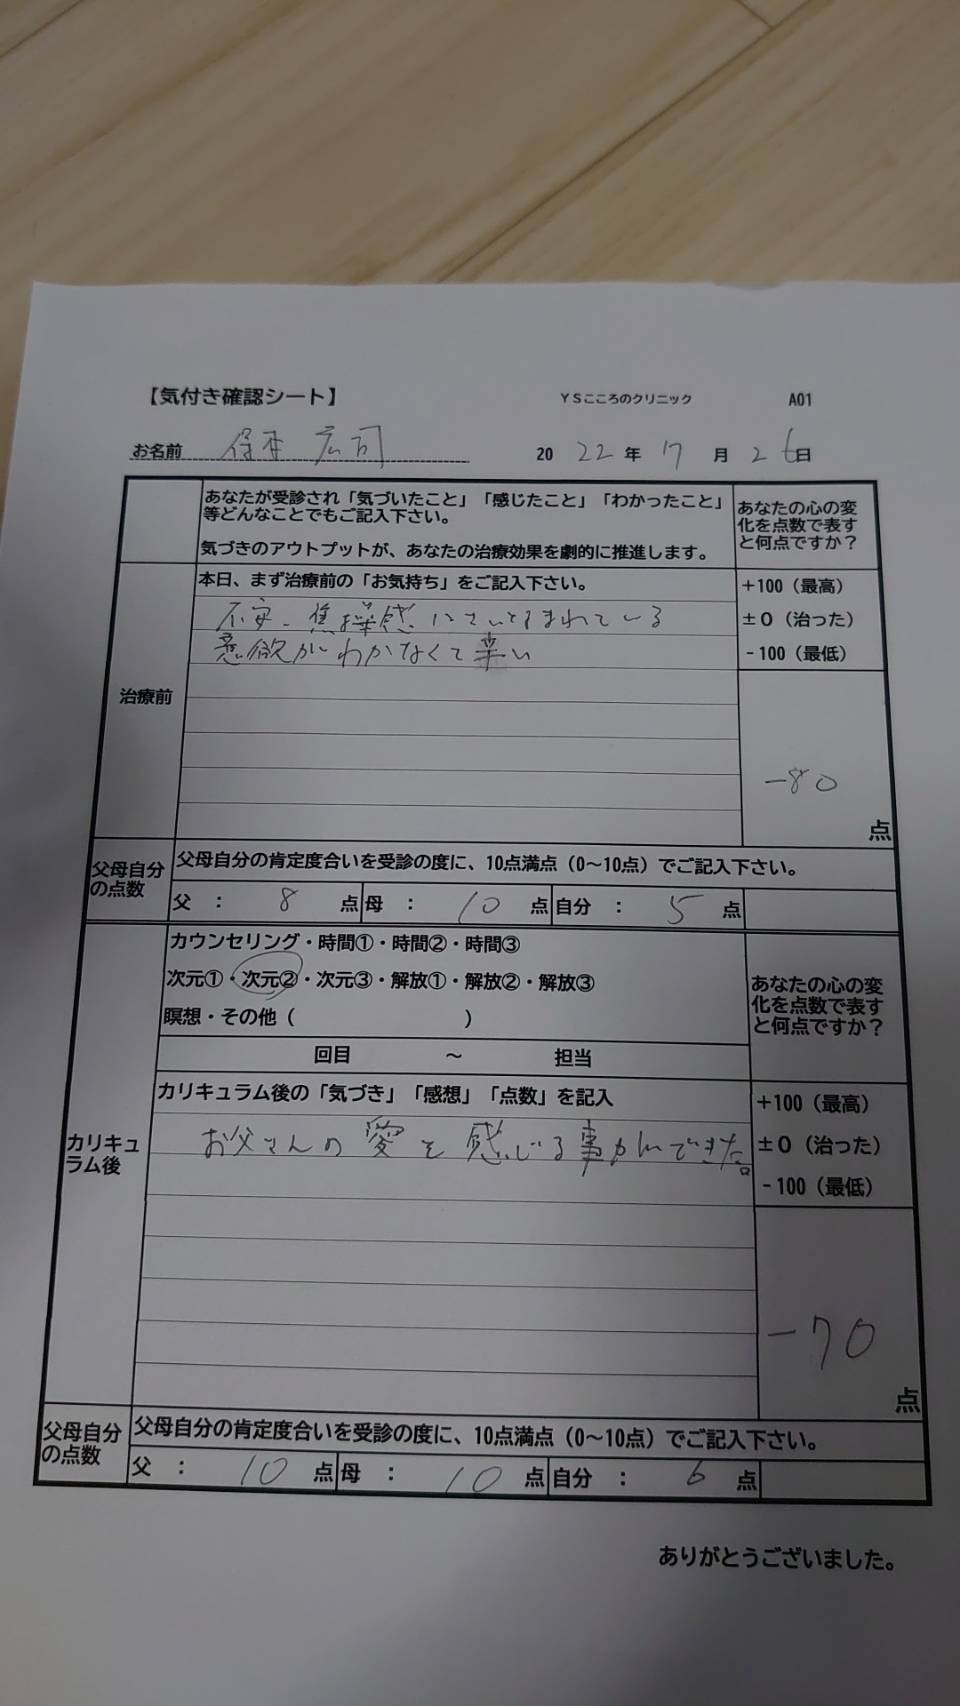 【気付き確認シート】 YSこころのクリニック A01
お名前 広司 20 22 年 月 26 日
あなたが受診され「気づいたこと」「感じたこと」「わかったこと」
等どんなことでもご記入下さい。
気づきのアウトプットが、あなたの治療効果を劇的に推進します。
あなたの心の変
化を点数で表す
と何点ですか？
治療前
本日、まず治療前の「お気持ち」をご記入下さい。
不安、焦燥感にさいなまれている
意欲がわかなくて辛い
+100（最高）
±0（治った）
-100（最低）
-80
点
父母自分
の点数
父母自分の肯定度合いを受診の度に、10点満点（0～10点）でご記入下さい。
父 ： 8 点 母 ： 10 点 自分 ： 5 点
カウンセリング・時間①・時間②・時間③
次元①・次元②・次元③・解放①・解放②・解放③
瞑想・その他（ ）
回目 ～ 担当
あなたの心の変
化を点数で表す
と何点ですか？
カリキュ
ラム後
カリキュラム後の「気づき」「感想」「点数」を記入
お父さんの愛を感じる事ができた。
+100（最高）
±0（治った）
-100（最低）
-70
点
父母自分
の点数
父母自分の肯定度合いを受診の度に、10点満点（0～10点）でご記入下さい。
父 ： 10 点 母 ： 10 点 自分 ： 6 点
ありがとうございました。